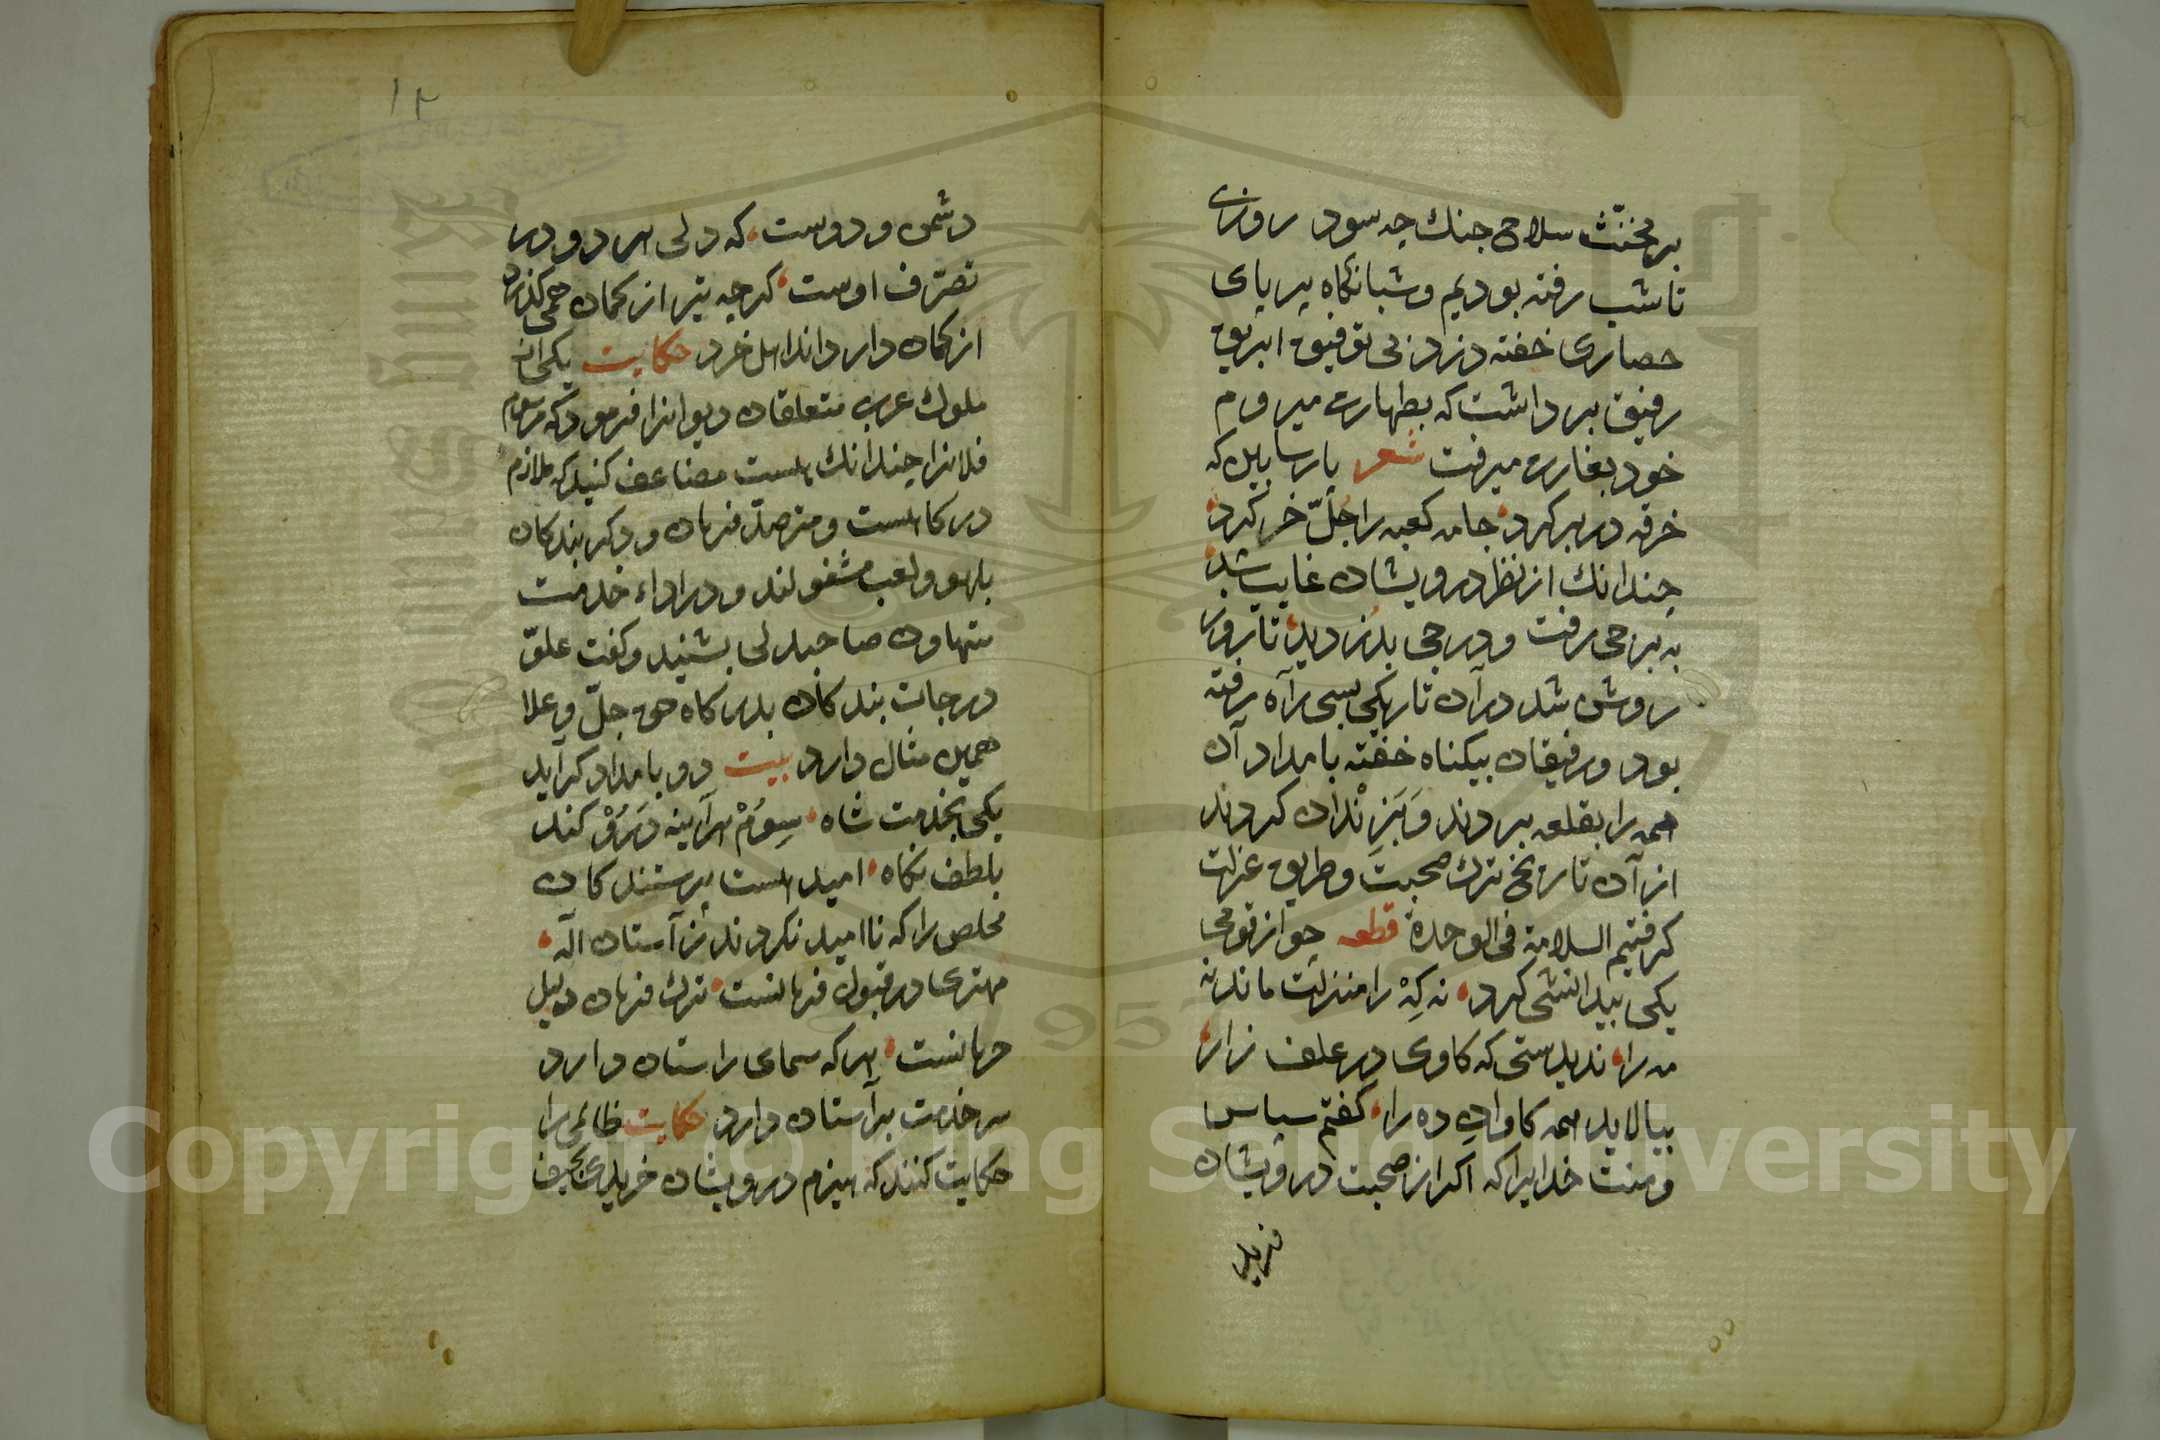 بر مخنّث سلاح جنك چه سود روزی
تا شب رفته بودیم و شبانكاه بپر پای
حصاری خفته دزد بی توفیق ابریق
رفیق برداشت كه بطهارت میروم
خود بغارت میرفت شعر پارسا بین كه
خرقه در بر كرد جامه كعبه را جلّ خر كرد
چندانك از نظر درویشان غایب شد
به برجی رفت و درجی بدزدید تا روز
روشن شد در آن تاریكی بسی راه رفته
بود و رفیقان بیكناه خفته بامداد آن
همه را بقلعه بردند و بزندان كردند
از آن تاریخ ترك صحبت و طریق عزلت
كرفتیم السلامة فی الوحدة قطعه چو از قومی
یكی بیدانشی كرد نه كِهْ را منزلت ماند نه
مه را ندیدستی كه كاوی در علف زار
بیالاید همه كاوان ده را كفتم سپاس
و منت خدایرا كه اكر از صحبت درویشان
١٢
دشمن و دوست كه دلی هر دو در
تصرّف اوست كرچه تیر از كمان همی كذرد
از كمان دار داند اهل خرد حكایت یكی از
ملوك عرب متعلقان دیوانرا فرمود كه مرسوم
فلانرا چندانك هست مضاعف كنید كه ملازم
دركاهست و مترصد فرمان و دكر بندكان
بلهو و لعب مشغولند و در اداء خدمت
متهاون صاحبدلی بشنید و كفت علوّ
درجات بندكان بدركاه حق جلّ و علا
همین مثال دارد بیت دو بامداد كر آید
یكی بخدمت شاه سِوُمْ هر آینه در وی كند
بلطف نكاه امید هست پرستندكان
مخلص را كه نا امید نكردند ز آستان اله
مهتری در قبول فرمانست ترك فرمان دلیل
حرمانست هر كه سیمای راستان دارد
سر خدمت بر آستان دارد حكایت ظالمی را
حكایت كنند كه هیزم درویشان خریدی بحیف